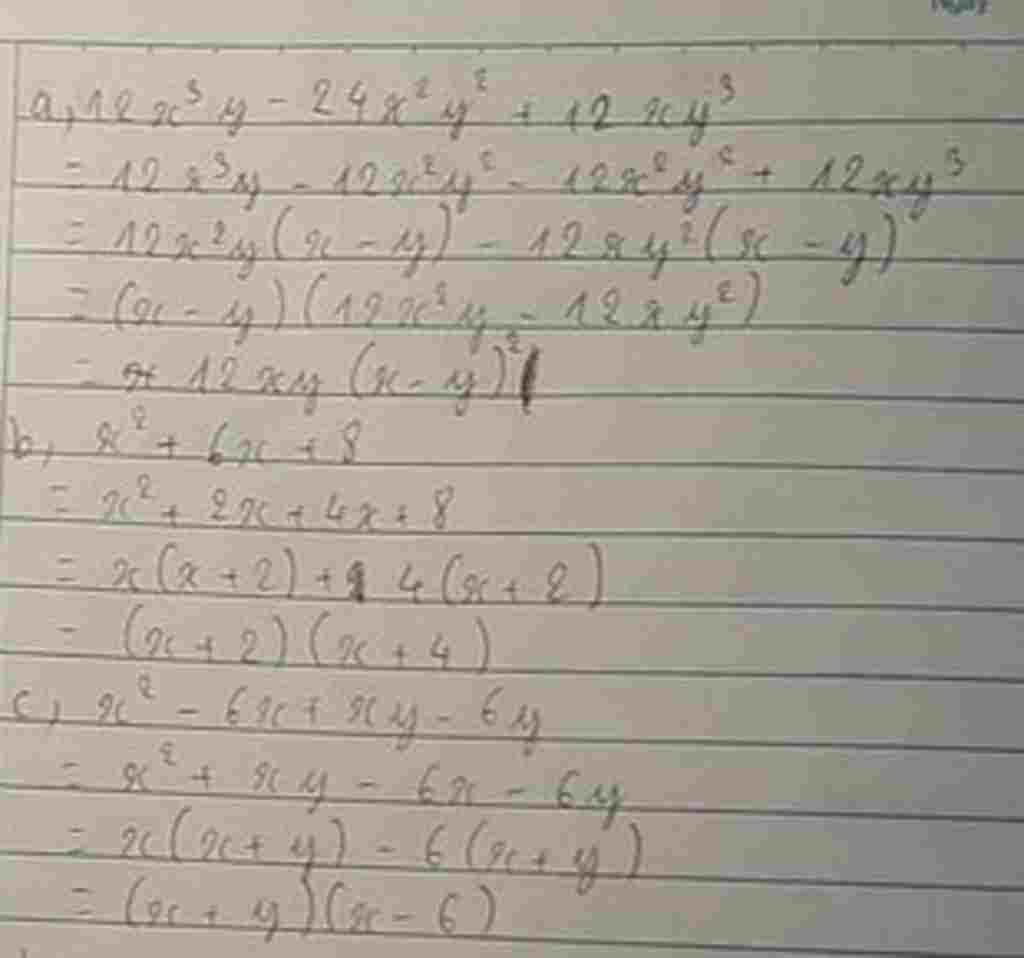 a, 12x³y - 24x²y² + 12xy³
= 12x³y - 12x²y² - 12x²y² + 12xy³
= 12x²y(x - y) - 12xy²(x - y)
= (x - y)(12x²y - 12xy²)
= 12xy(x - y)²
b, x² + 6x + 8
= x² + 2x + 4x + 8
= x(x + 2) + 4(x + 2)
= (x + 2)(x + 4)
c, x² - 6x + xy - 6y
= x² + xy - 6x - 6y
= x(x + y) - 6(x + y)
= (x + y)(x - 6)